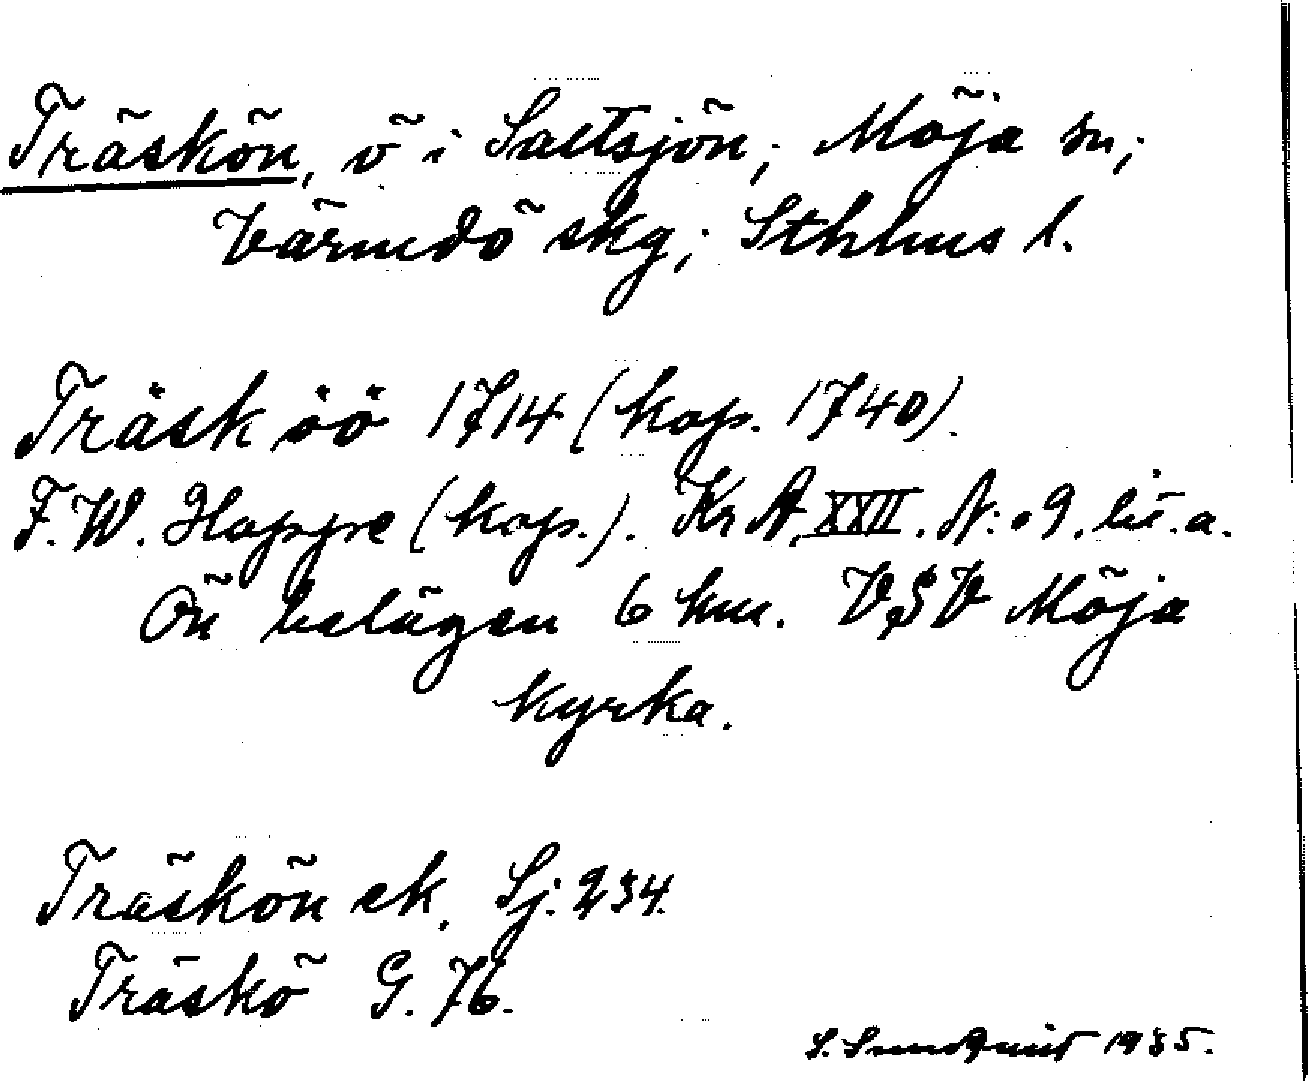 Träskön, ö i Saltsjön; Möja sn;
Värmdö skg; Sthlms l.
Träsk öö 1714 (kop. 1740).
F. W. Hoppe (kop.). Kr A XXII. N:o 9. lit. a.
Ön belägen 6 km. VSV Möja
kyrka.
Träskön ek. Sj. 234.
Träskö G. 76.
S. Sundqvist 1935.